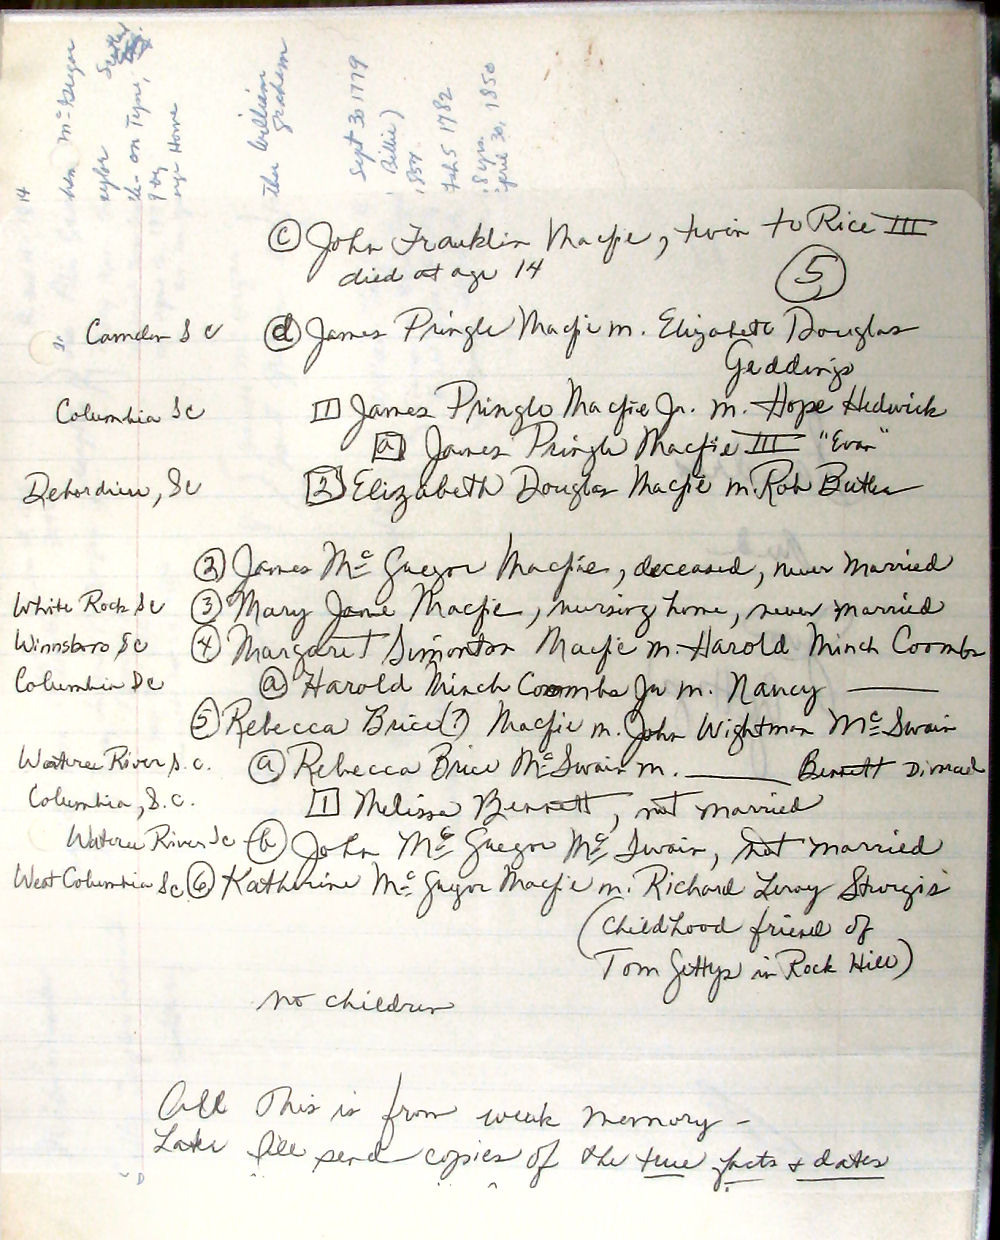 14
McGregor
on Tyne,
Home
William
Graham
Sept 30 1779
Billie)
1854
Feb 5 1782
8 yrs.
April 30, 1850
(c) John Franklin Macfie, twin to Rice III
died at age 14
(5)
Camden S C (d) James Pringle Macfie m. Elizabeth Douglas
Geddings
Columbia SC [1] James Pringle Macfie Jr. m. Hope Hedwick
[a] James Pringle Macfie III "Evan"
Debordieu, SC [2] Elizabeth Douglas Macfie m. Rob Butler
(2) James McGregor Macfie, deceased, never married
White Rock SC (3) Mary Jane Macfie, nursing home, never married
Winnsboro SC (4) Margaret Simonton Macfie m. Harold Minch Coombs
Columbia SC (a) Harold Minch Coombs Jr m. Nancy ———
(5) Rebecca Brice(?) Macfie m. John Wightman McSwain
Wateree River S.C. (a) Rebecca Brice McSwain m. ______ Bennett Divorced
Columbia, S.C. [1] Melissa Bennett, not married
Wateree River SC (b) John McGregor McSwain, not married
West Columbia SC (6) Katherine McGregor Macfie m. Richard Leroy Sturgis
(Childhood friend of
Tom Gettys in Rock Hill)
no children
All this is from weak memory -
Later I'll send copies of the true facts & dates